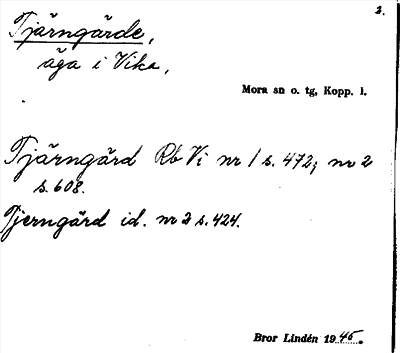 2.
Tjärngärde,
äga i Vika,
Mora sn o. tg, Kopp. l.
Tjärngärd Rb Vi nr 1 s. 472; nr 2
s. 608.
Tjerngärd id. nr 2 s. 424.
Bror Lindén 1945.